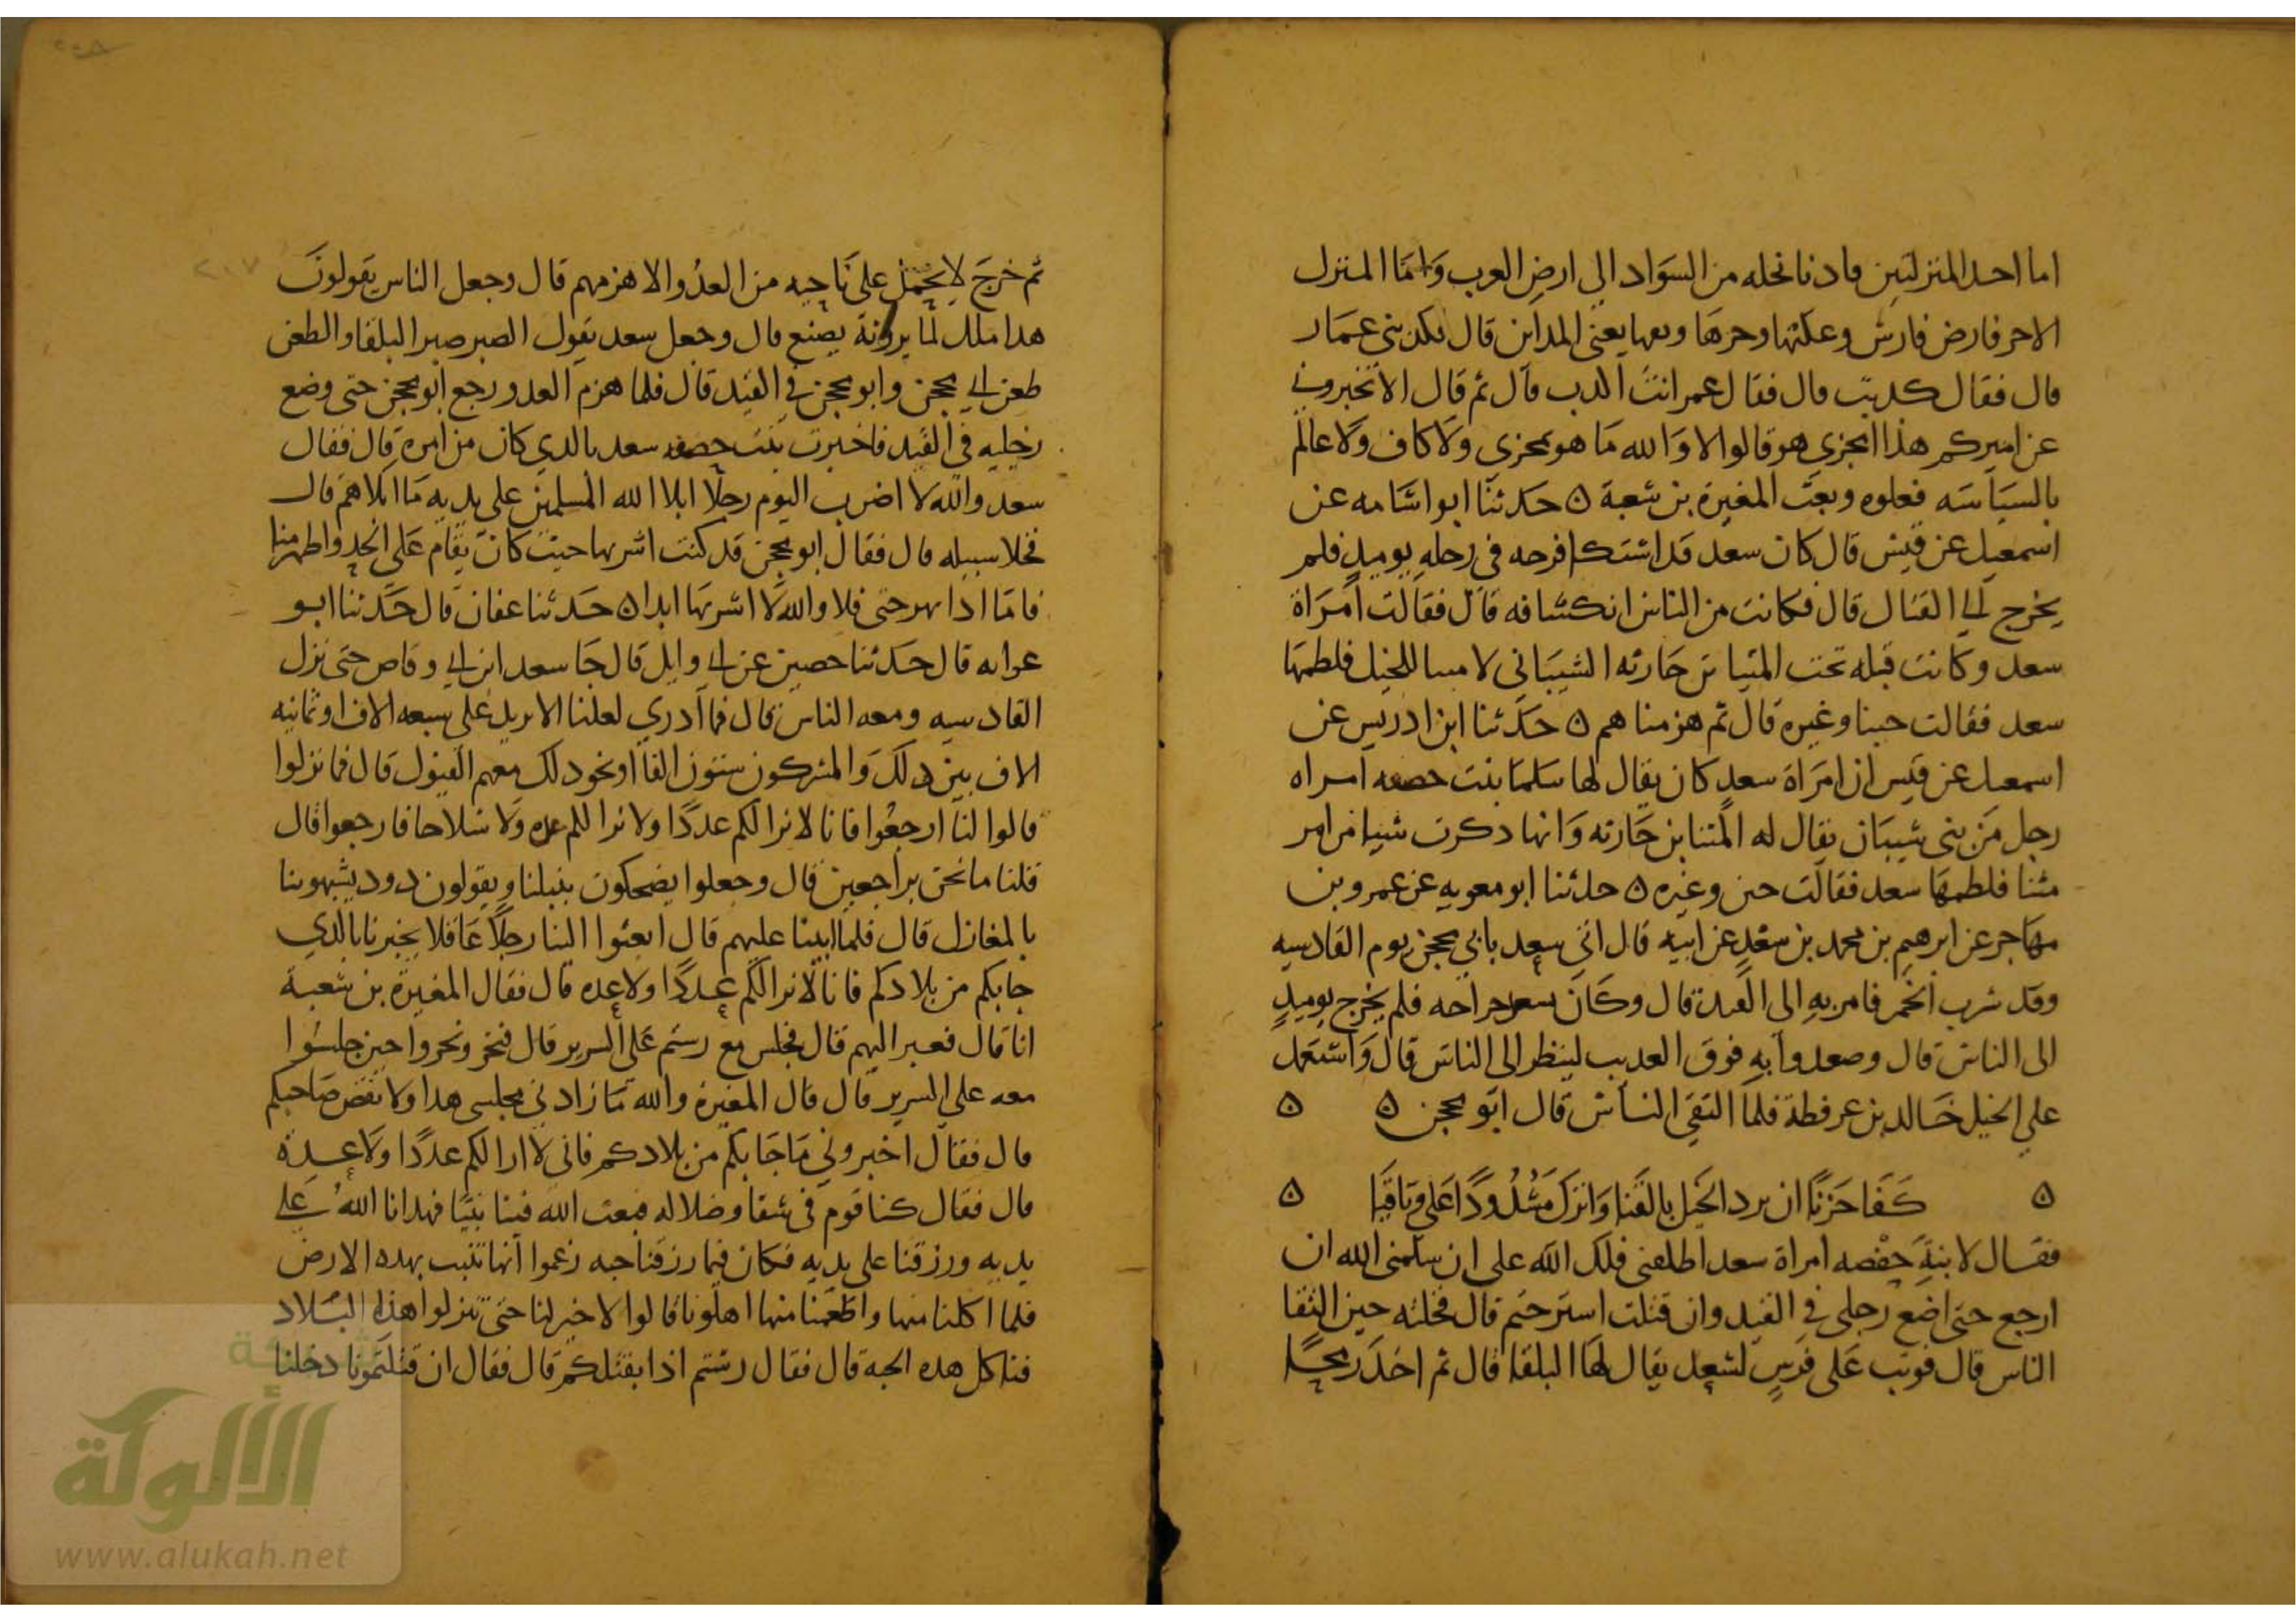 اما احد المنزلتين فادنا نحله من السواد الى ارض العرب واما المنزل
الاخر فارض فارس وعكتها وحرها وبقها يعنى المداين قال فكذبنى عمار
قال فقال كذبت قال فقال عمر انت الدب قال ثم قال الا تخبرونى
عن اميركم هذا امجزى هو قالوا لا والله ما هو بمجزى ولا كاف ولا عالم
بالسياسه فعزله وبعث المغيرة بن شعبة ه حدثنا ابو اسامه عن
اسمعيل عن قيس قال كان سعد قد اشتكا قرحه فى رجله يوميذ فلم
يخرج الى القتال قال فكانت من الناس انكشافه قال فقالت امراة
سعد وكانت قبله تحت المثنا بن حارثه الشيبانى لا مثنا للخيل فلطمها
سعد فقالت جبنا وغيره قال ثم هزمناهم ه حدثنا ابن ادريس عن
اسمعيل عن قيس ان امراة سعد كان يقال لها سلما بنت حصفه امراه
رجل من بنى شيبان يقال له المثنا بن حارثه وانها ذكرت شيا من امر
مثنا فلطمها سعد فقالت جبن وغيره ه حدثنا ابو معويه عن عمرو بن
مهاجر عن ابرهيم بن محمد بن سعد عن ابيه قال اتى سعد بابى محجن يوم القادسيه
وقد شرب الخمر فامر به الى القيد قال وكان بسعد جراحه فلم يخرج يوميذ
الى الناس قال وصعدوا به فوق العذيب لينظر الى الناس قال واستعمل
على الخيل خالد بن عرفطة فلما التقى الناس قال ابو محجن ه ه
ه كفا حزنا ان يرد الخيل بالقنا واترك مشدودا على وثاقيا ه
فقال لابنة حفصه امراة سعد اطلعنى فلك الله على ان سلمنى الله ان
ارجع حتى اضع رجلى فى القيد وان قتلت استرحتم قال فحلته حين التقا
الناس قال فوثب على فرس لسعد يقال لها البلقا قال ثم اخذ رمحا
٢٠٧
ثم خرج لا يحمل على ناحيه من العدو الا هزمهم قال وجعل الناس يقولون
هذا ملك لما يرونه يصنع قال وجعل سعد يقول الصبر صبر البلقا والطعن
طعن ابى محجن وابو محجن فى القيد قال فلما هزم العدو رجع ابو محجن حتى وضع
رجليه فى القيد فاخبرت بنت حصفه سعد بالذى كان من امره قال فقال
سعد والله لا اضرب اليوم رجلا ابلا الله المسلمين على يديه ما ابلاهم قال
فخلا سبيله قال فقال ابو محجن قد كنت اشربها حيث كان يقام على الحد واطهر منها
فاما اذا بهرجتنى فلا والله لا اشربها ابدا ه حدثنا عفان قال حدثنا ابو
عوانه قال حدثنا حصين عن ابى وايل قال جا سعد ابن ابى وقاص حتى نزل
القادسيه ومعه الناس قال فما ادرى لعلنا الا نزيد على سبعه الاف او ثمانيه
الاف بين ذلك والمشركون ستون الفا او نحو ذلك معهم الفيول قال فما نزلوا
قالوا لنا ارجعوا فانا لا نرا لكم عددا ولا نرا لكم عده ولا سلاحا فارجعوا قال
قلنا ما نحن براجعين قال وجعلوا يضحكون بنبلنا ويقولون دود يشبهونا
بالمغازل قال فلما ابينا عليهم قال ابعثوا الينا رجلا عاقلا يخبرنا بالذى
جا بكم من بلادكم فانا لا نرا لكم عددا ولا عده قال فقال المغيرة بن شعبة
انا قال فعبر اليهم قال فجلس مع رستم على السرير قال فنخر ونخروا حين جلسوا
معه على السرير قال قال المغيرة والله ما زاد نى مجلسى هذا ولا نقص صاحبكم
قال فقال اخبرونى ما جا بكم من بلادكم فانى لا ارا لكم عددا ولا عدة
قال فقال كنا قوم فى شقا وضلاله فبعث الله فينا نبيا فهدانا الله على
يديه ورزقنا على يديه فكان فيما رزقنا حبه زعموا انها تنبت بهذه الارض
فلما اكلنا منها واطعمنا منها اهلونا قالوا لا خير لنا حتى تنزلوا هذه البلاد
فناكل هذه الحبة قال فقال رستم اذا نقتلكم قال فقال ان قتلتمونا دخلنا
الألوكة
www.alukah.net